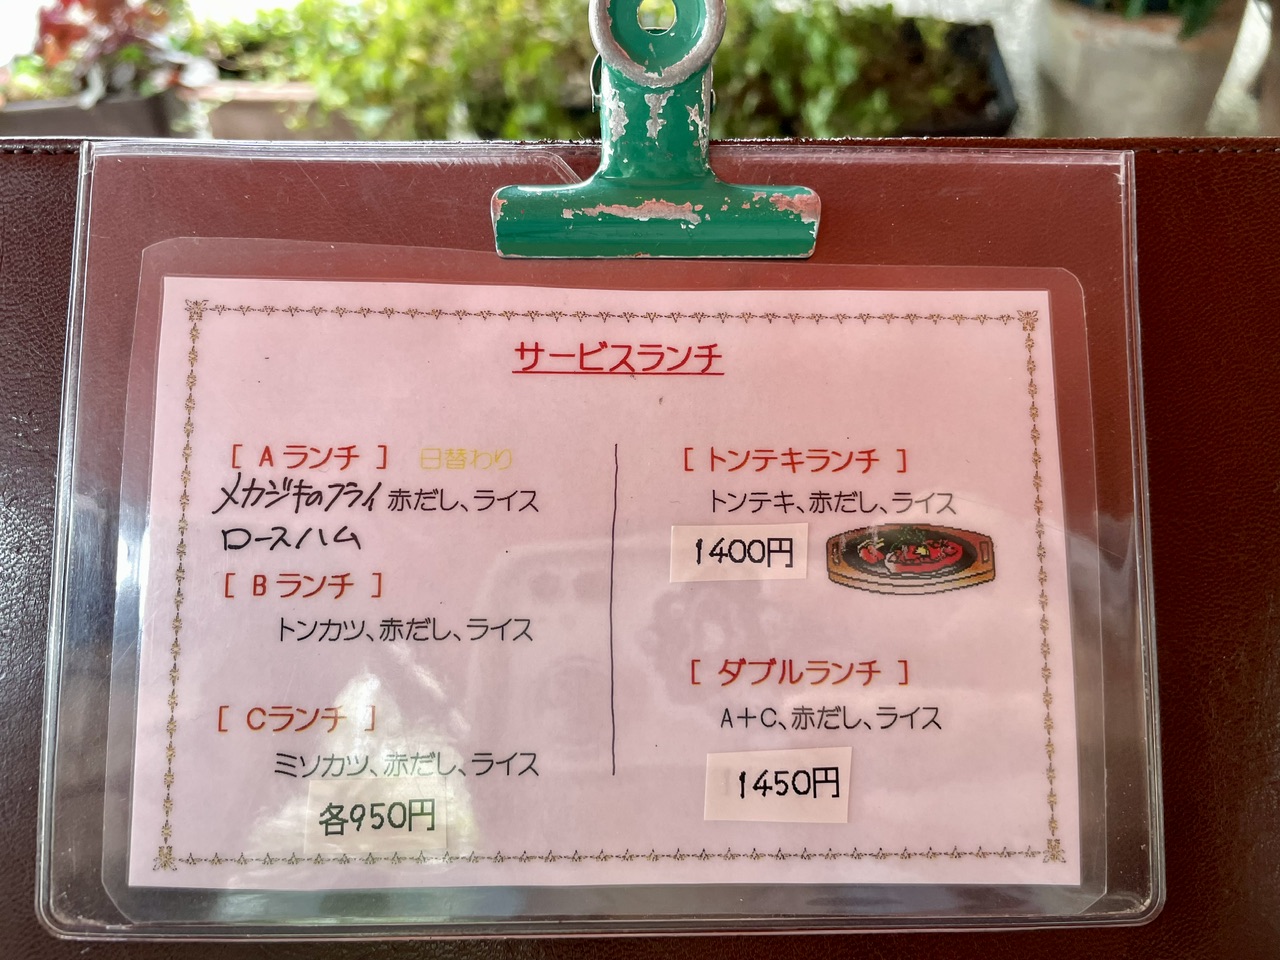 サービスランチ
[ Aランチ ] 日替わり
メカジキのフライ 赤だし、ライス
ロースハム
[ Bランチ ]
トンカツ、赤だし、ライス
[ Cランチ ]
ミソカツ、赤だし、ライス
各950円
[ トンテキランチ ]
トンテキ、赤だし、ライス
1400円
[ ダブルランチ ]
A+C、赤だし、ライス
1450円